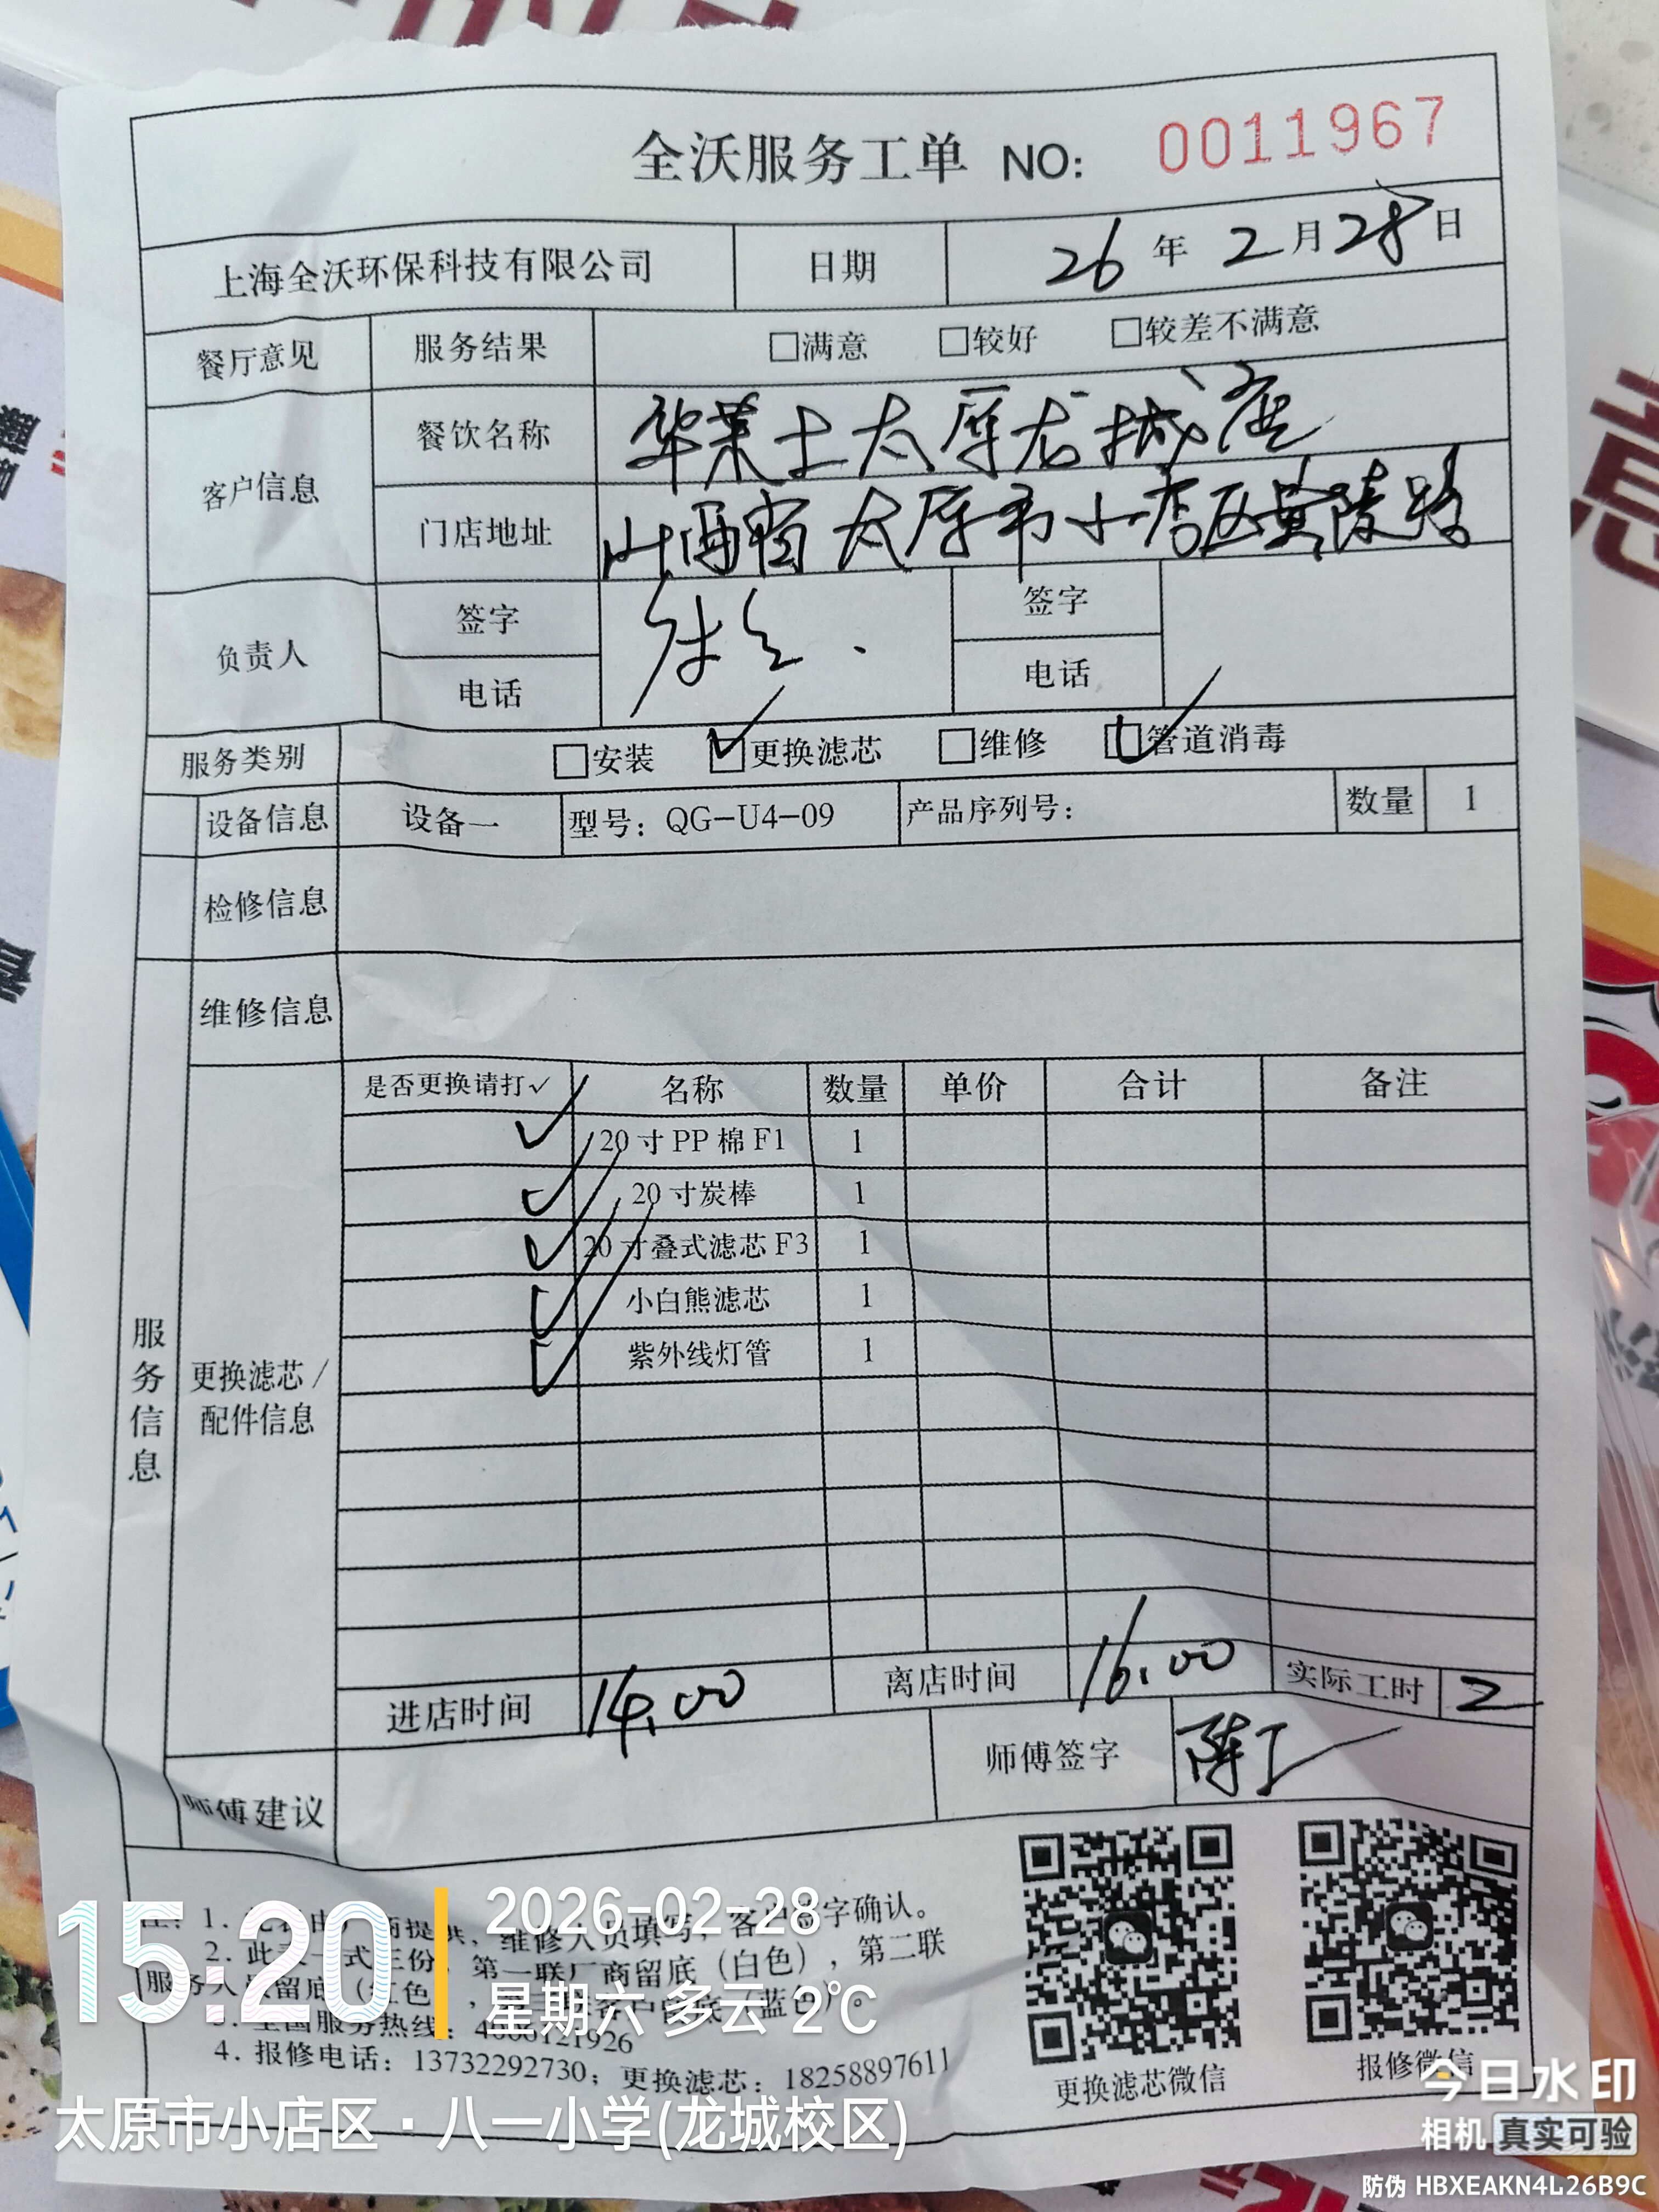 全沃服务工单 NO: 0011967
上海全沃环保科技有限公司 日期 26 年 2 月 28 日
餐厅意见 服务结果 □满意 □较好 □较差不满意
客户信息 餐饮名称 华莱士太原龙城店
门店地址 山西省太原市小店区黄陵路
负责人 签字 签字
电话 电话
服务类别 □安装 ☑更换滤芯 □维修 ☑管道消毒
设备信息 设备一 型号: QG-U4-09 产品序列号: 数量 1
检修信息
维修信息
服务信息
更换滤芯/
配件信息
是否更换请打✓ 名称 数量 单价 合计 备注
✓ 20寸PP棉F1 1
✓ 20寸炭棒 1
✓ 20寸叠式滤芯F3 1
✓ 小白熊滤芯 1
✓ 紫外线灯管 1
进店时间 14.00 离店时间 16.00 实际工时 2
师傅建议 师傅签字 陈工
注: 1. 商提供, 维修人员填写, 客户签字确认。
2. 此表一式三份, 第一联厂商留底 (白色), 第二联
服务人员留底 (红色), 客户留底 (蓝色)。
3. 全国服务热线: 4000121926
4. 报修电话: 13732292730; 更换滤芯: 18258897611
更换滤芯微信 报修微信
15:20
2026-02-28
星期六 多云 2℃
太原市小店区·八一小学(龙城校区)
今日水印
相机 真实可验
防伪 HBXEAKN4L26B9C